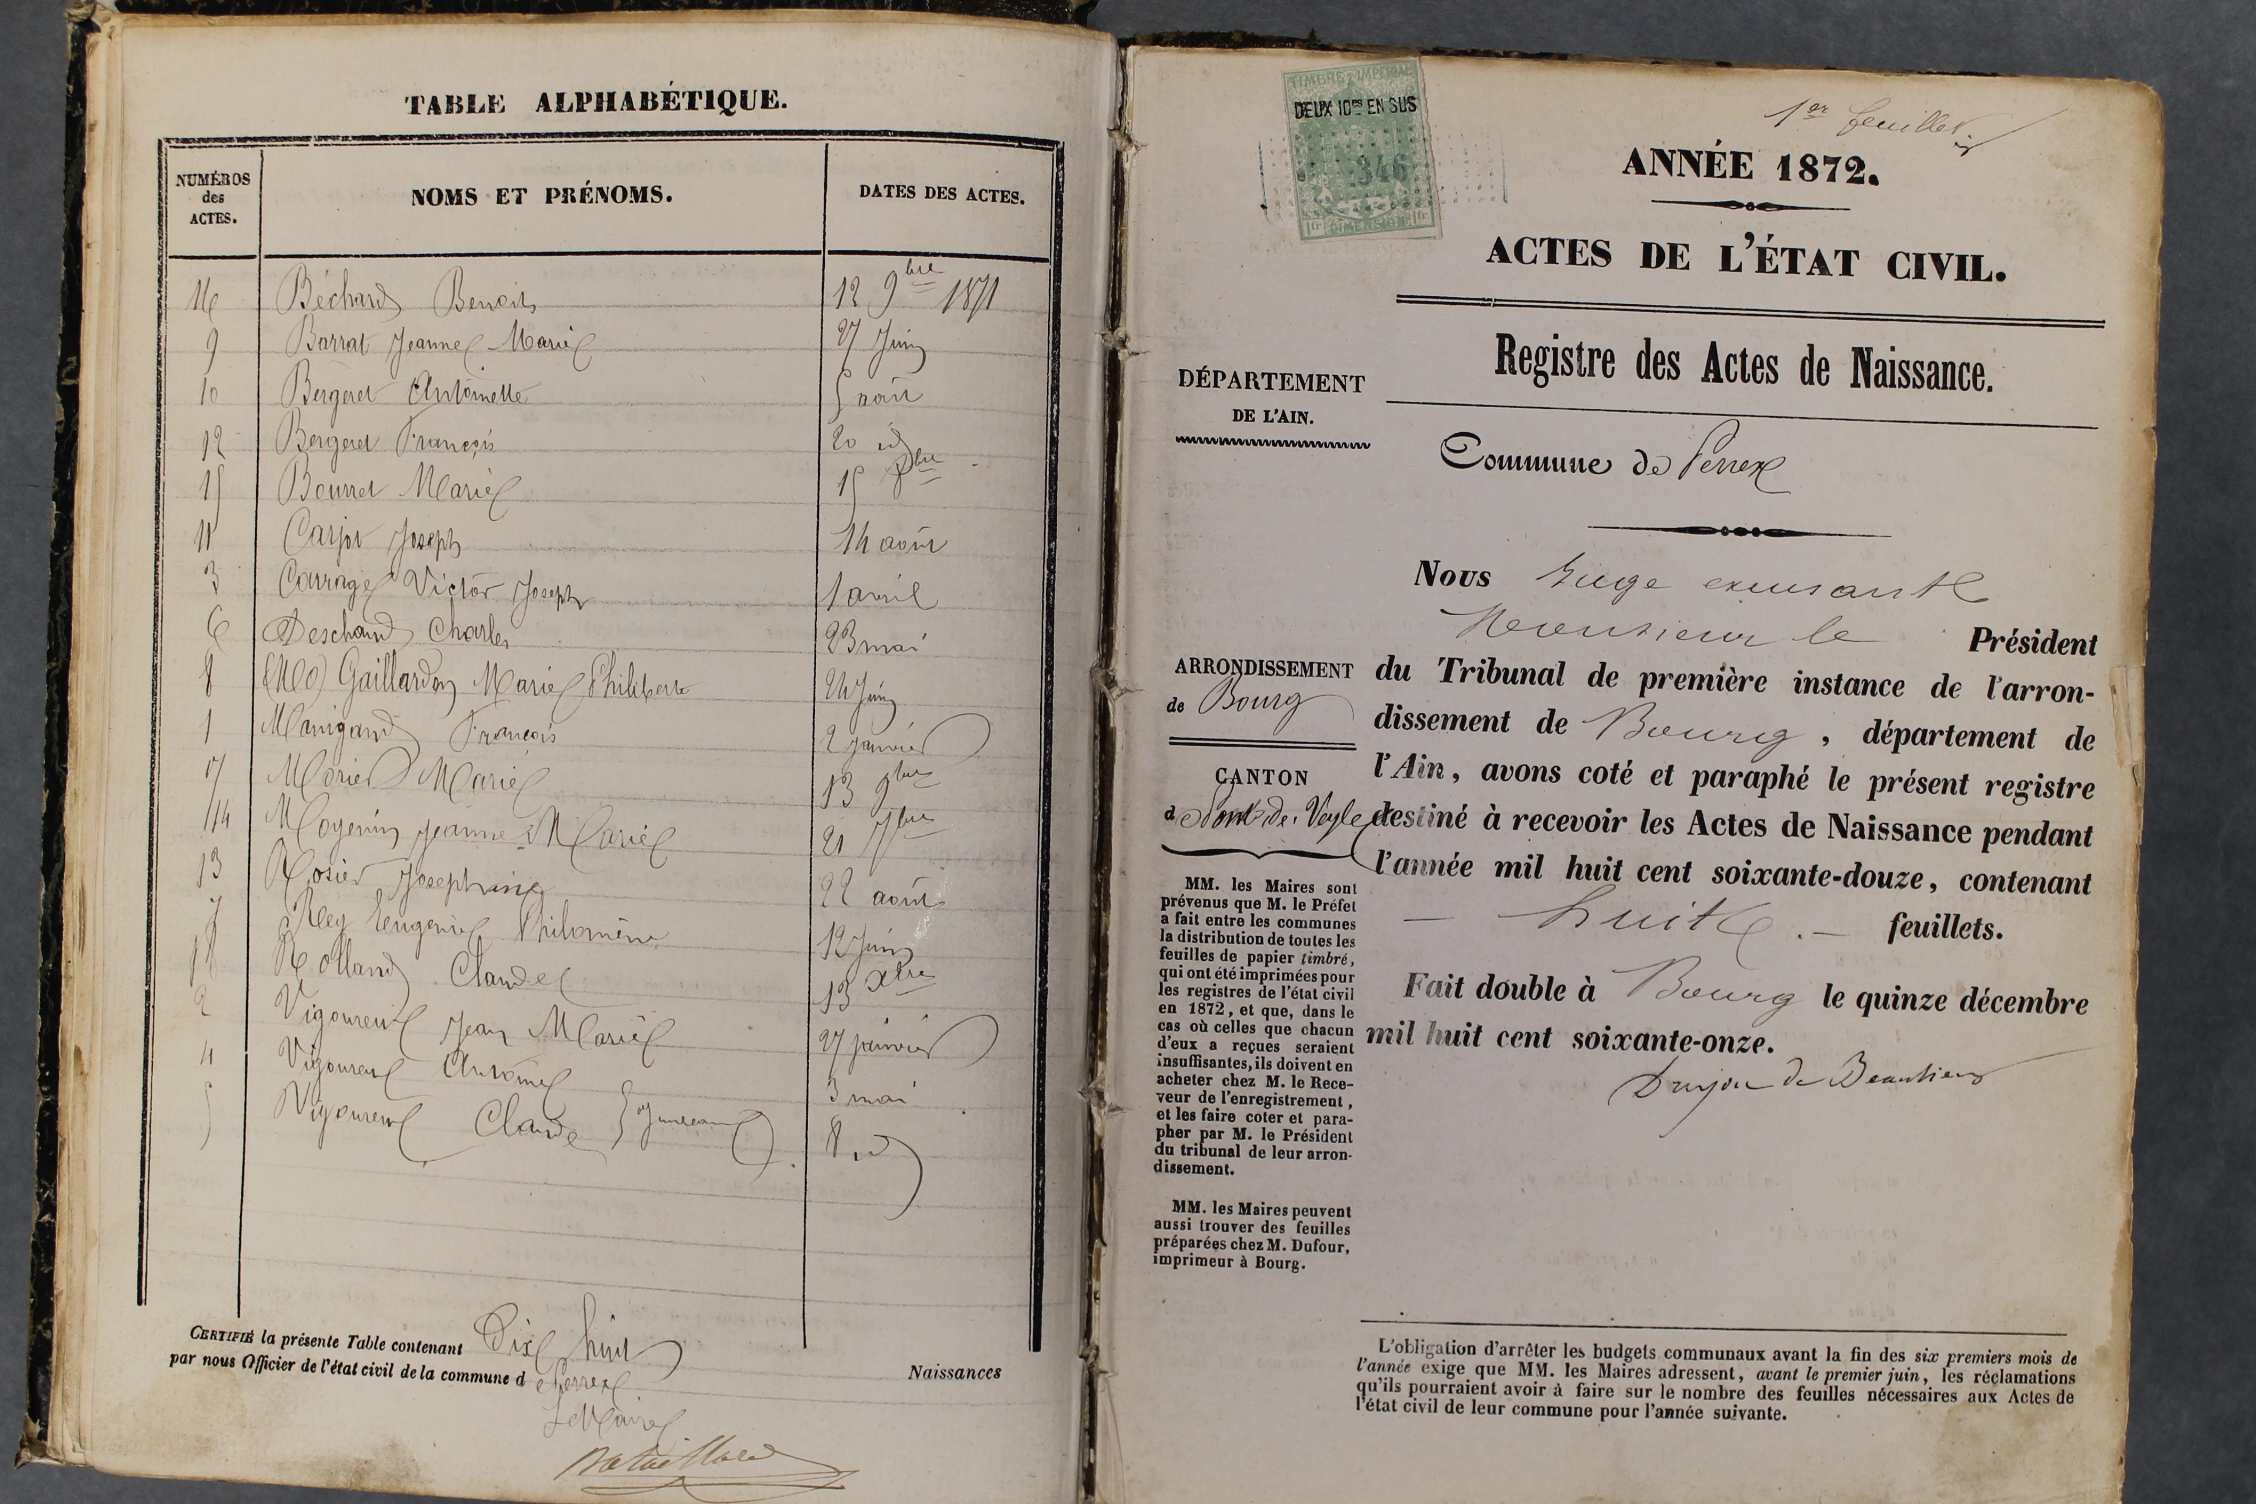 TABLE ALPHABÉTIQUE.
NUMÉROS des ACTES. NOMS ET PRÉNOMS. DATES DES ACTES.
16 Béchard Benoit 12 9bre 1871
9 Barrat Jeanne Marie 27 Juin
10 Bergeret Antoinette 5 août
12 Bergeret François 20 id
15 Bourret Marie 15 8bre
11 Carjot Joseph 14 août
3 Carrage Victor Joseph 1 avril
6 Deschamd Charles 23 mai
8 Gaillardon Marie Philiberte 24 Juin
1 Manigand François 2 janvier
17 Morier Marie 13 9bre
14 Moyenin Jeanne Marie 21 7bre
13 Rosier Josephine 22 août
7 Rey Eugenie Philomène 12 Juin
18 Rolland Claude 13 Xbre
2 Vigoureux Jean Marie 27 janvier
4 Vigoureux Antoine 3 mai
5 Vigoureux Claude Jumeaux 8 id
CERTIFIÉ la présente Table contenant Dix huit Naissances
par nous Officier de l'état civil de la commune de Perrex
Le Maire
Bataillard
TIMBRE IMPÉRIAL
DEUX 10es EN SUS
346
1fr DIMENSION 1fr
1er feuillet
ANNÉE 1872.
ACTES DE L'ÉTAT CIVIL.
Registre des Actes de Naissance.
DÉPARTEMENT
DE L'AIN.
Commune de Perrex
ARRONDISSEMENT
de Bourg
CANTON
de Pont-de-Veyle
MM. les Maires sont
prévenus que M. le Préfet
a fait entre les communes
la distribution de toutes les
feuilles de papier timbré,
qui ont été imprimées pour
les registres de l'état civil
en 1872, et que, dans le
cas où celles que chacun
d'eux a reçues seraient
insuffisantes, ils doivent en
acheter chez M. le Rece-
veur de l'enregistrement,
et les faire coter et para-
pher par M. le Président
du tribunal de leur arron-
dissement.
MM. les Maires peuvent
aussi trouver des feuilles
préparées chez M. Dufour,
imprimeur à Bourg.
Nous Juge exerçant
Monsieur le Président
du Tribunal de première instance de l'arron-
dissement de Bourg, département de
l'Ain, avons coté et paraphé le présent registre
destiné à recevoir les Actes de Naissance pendant
l'année mil huit cent soixante-douze, contenant
— huit — feuillets.
Fait double à Bourg le quinze décembre
mil huit cent soixante-onze.
Drujon de Beaulieu
L'obligation d'arrêter les budgets communaux avant la fin des six premiers mois de
l'année exige que MM. les Maires adressent, avant le premier juin, les réclamations
qu'ils pourraient avoir à faire sur le nombre des feuilles nécessaires aux Actes de
l'état civil de leur commune pour l'année suivante.